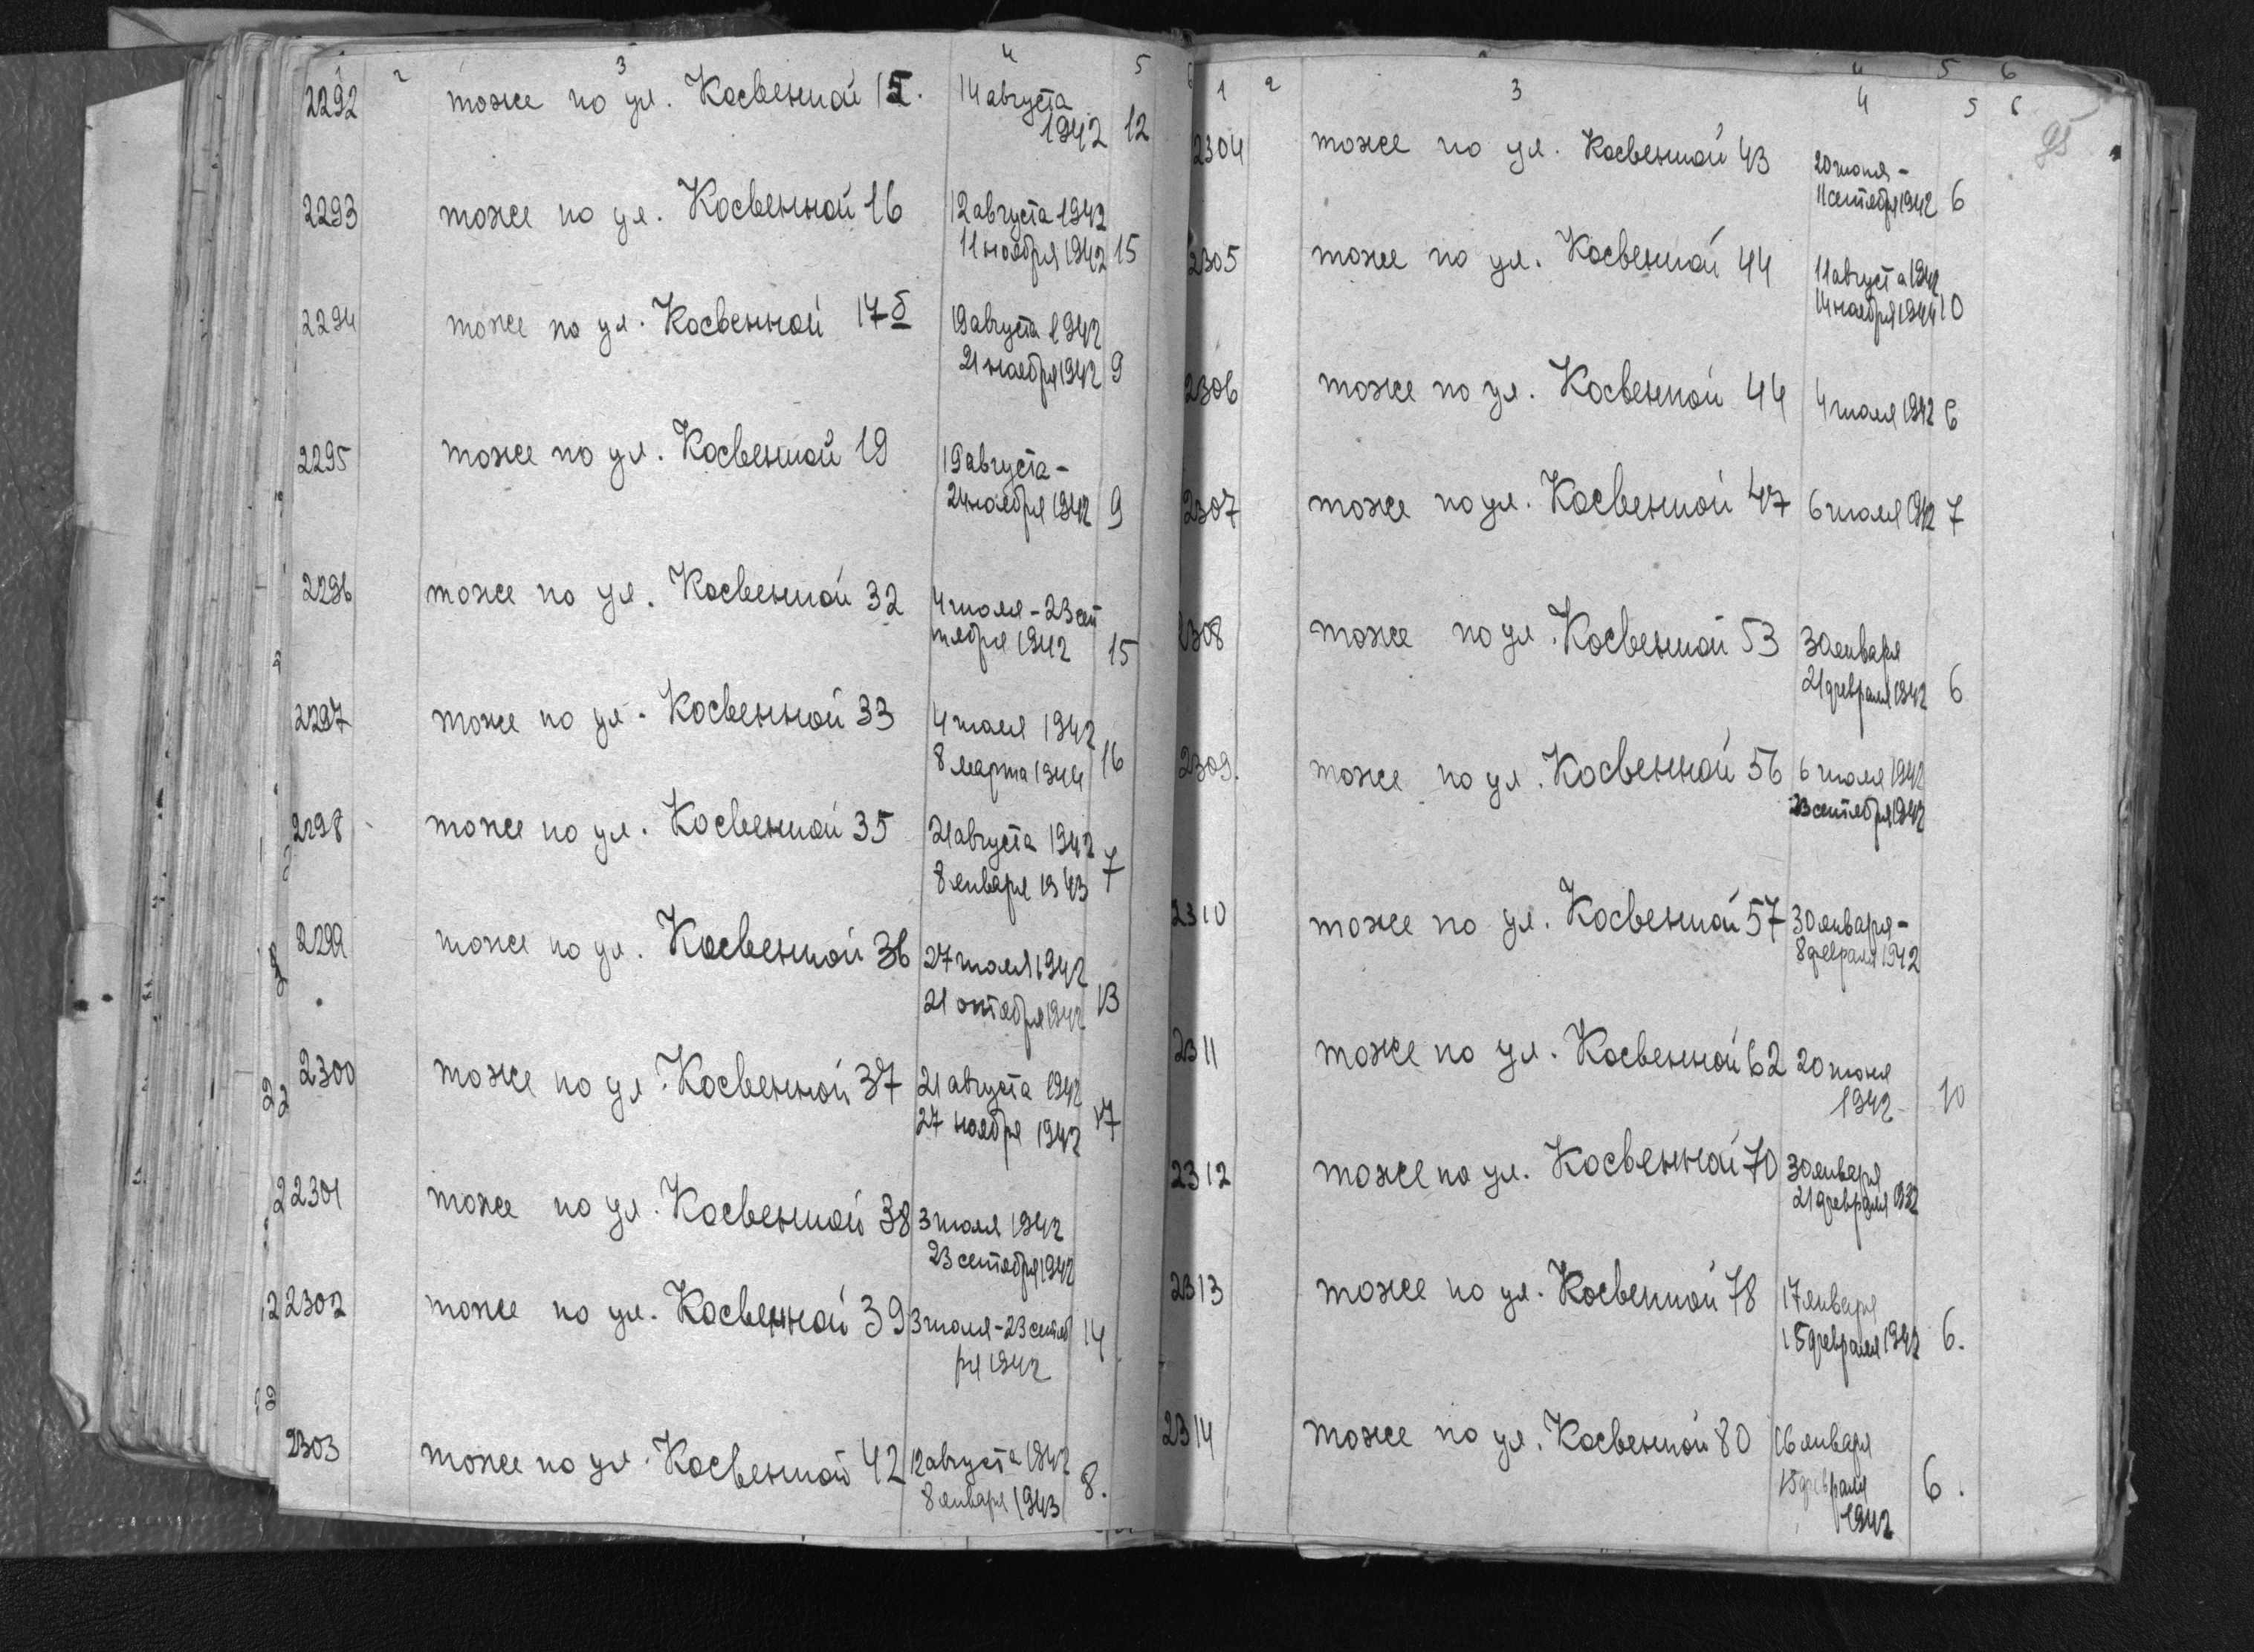 1 2 3 4 5 6
2292 тоже по ул. Косвенной 15. 14 августа
1942 12
2293 тоже по ул. Косвенной 16 12 августа 1942
11 ноября 1942 15
2294 тоже по ул. Косвенной 17б 19 августа 1942
21 ноября 1942 9
2295 тоже по ул. Косвенной 19 19 августа -
24 ноября 1942 9
2296 тоже по ул. Косвенной 32 4 июля - 23 сен
тября 1942 15
2297 тоже по ул. Косвенной 33 4 июля 1942
8 марта 1944 16
2298 тоже по ул. Косвенной 35 21 августа 1942
8 января 1943 7
2299 тоже по ул. Косвенной 36 27 июля 1942
21 октября 1942 13
2300 тоже по ул. Косвенной 37 21 августа 1942
27 ноября 1942 17
2301 тоже по ул. Косвенной 38 3 июля 1942
23 сентября 1942
2302 тоже по ул. Косвенной 39 3 июля - 23 сентяб
ря 1942 14
2303 тоже по ул. Косвенной 42 12 августа 1942
8 января 1943 8.
4 5 6
1 2 3 4 5 6
95
2304 тоже по ул. Косвенной 43 20 июня -
11 сентября 1942 6
2305 тоже по ул. Косвенной 44 11 августа 1942
14 ноября 1944 10
2306 тоже по ул. Косвенной 44 4 июля 1942 6
2307 тоже по ул. Косвенной 47 6 июля 1942 7
2308 тоже по ул. Косвенной 53 30 января
21 февраля 1942 6
2309. тоже по ул. Косвенной 56 6 июля 1942
23 сентября 1942
2310 тоже по ул. Косвенной 57 30 января -
8 февраля 1942
2311 тоже по ул. Косвенной 62 20 июня
1942 10
2312 тоже по ул. Косвенной 70 30 января
21 февраля 1932
2313 тоже по ул. Косвенной 78 17 января
15 февраля 1942 6.
2314 тоже по ул. Косвенной 80 16 января
15 февраля 6.
1942